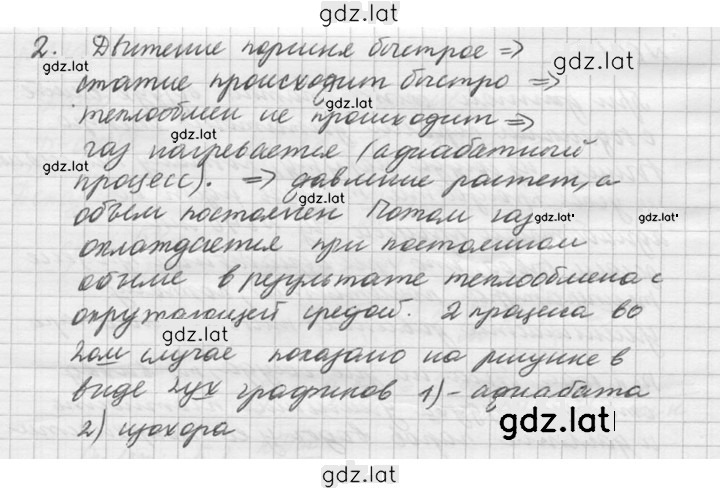 gdz.lat
2. Движение поршня быстрое =>
gdz.lat
gdz.lat
сжатие происходит быстро =>
gdz.lat
теплообмен не происходит =>
gdz.lat
газ нагревается (адиабатный
gdz.lat
процесс). => давление растет, а
gdz.lat
объем постоянен Потом газ
gdz.lat
gdz.lat
охлаждается при постоянном
объеме в результате теплообмена с
окружающей средой. 2 процесса во
gdz.lat
2ом случае показано на рисунке в
виде 2ух графиков 1) - адиабата
2) изохора
gdz.lat
gdz.lat